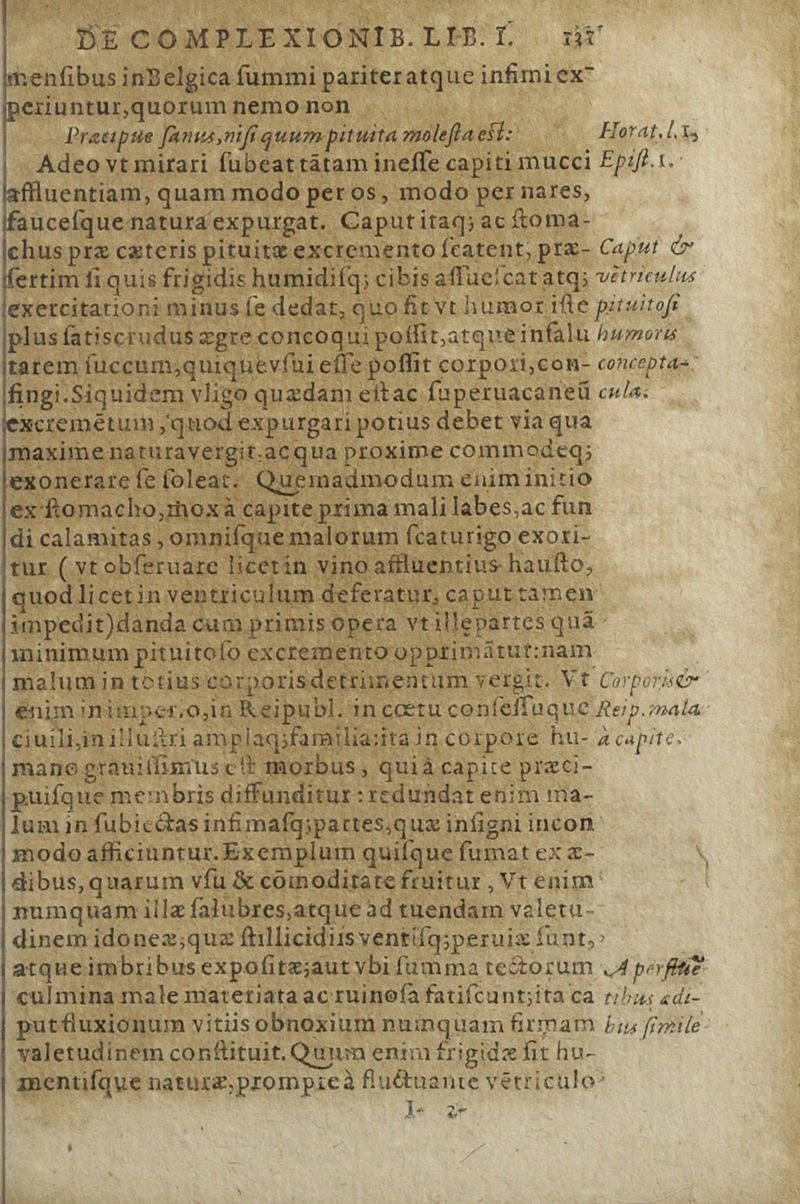 DE COMPLEXIONIB. LIB. I.
menſibus in Belgica ſummi pariter atque infimi ex-
periuntur, quorum nemo non
Præcipue ſanus, niſi quum pituita moleſta eſt: Horat. l. 1,
Adeo vt mirari ſubeat tātam ineſſe capiti mucci Epiſt. 1.
affluentiam, quam modo per os, modo per nares,
faucesque natura expurgat. Caput itaq; ac ſtoma-
chus præ cæteris pituitæ excremento ſcatent, præ- Caput &
ſertim ſi quis frigidis humidiſq; cibis aſſueſcat atq; vētriculus
exercitationi minus ſe dedat, quo fit vt humor iſte pituitoſi
plus ſatis crudus ægre concoqui poſſit, atque in ſalu humoris
tarem ſuccum, quique vſui eſſe poſſit corpori, con- concepta-
fingi. Siquidem vligo quædam eſt ac ſuperuacaneū cula.
excremētum, quod expurgari potius debet via qua
maxime natura vergit. ac qua proxime commodeq;
exonerare ſe ſoleat. Quemadmodum enim initio
ex ſtomacho, mox à capite prima mali labes, ac fun
di calamitas, omniſque malorum ſcaturigo exori-
tur ( vt obſeruare licet in vino affluentius hauſto,
quod licet in ventriculum deferatur, caput tamen
impedit) danda cum primis opera vt ille partes quā
minimum pituitoſo excremento opprimātur: nam
malum in totius corporis detrimentum vergit. Vt Corporis &
enim in imperio, in Reipubl. in cœtu conſeſſuque Reip. mala
ciuili, in illuſtri amplaq; familia: ita in corpore hu- à capite.
mano grauiſſimus eſt morbus, qui à capite præci-
puiſque membris diffunditur: redundat enim ma-
lum in ſubiectas infimaſq; partes, quæ inſigni incom
modo afficiuntur. Exemplum quiſque ſumat ex æ-
dibus, quarum vſu & cōmoditate fruitur, Vt enim
numquam illæ ſalubres, atque ad tuendam valetu-
dinem idoneæ, quæ ſtillicidiis ventiſq; peruiæ ſunt,
atque imbribus expoſitæ; aut vbi ſumma tectorum A perflue
culmina male materiata ac ruinoſa fatiſcunt; ita ca tibus ædi-
put fluxionum vitiis obnoxium numquam firmam bus ſimile
valetudinem conſtituit. Quum enim frigidæ ſit hu-
mentiſque naturæ, prompte à fluctuante vētriculo